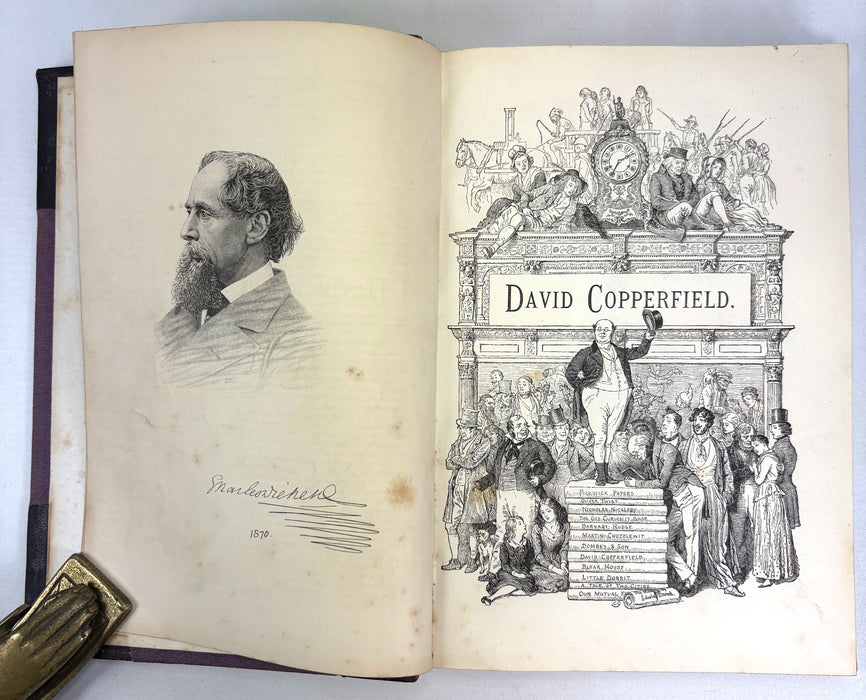 Charles Dickens
1870.
DAVID COPPERFIELD.
PICKWICK PAPERS
OLIVER TWIST
NICHOLAS NICKLEBY
THE OLD CURIOSITY SHOP
BARNABY RUDGE
MARTIN CHUZZLEWIT
DOMBEY & SON
DAVID COPPERFIELD
BLEAK HOUSE
LITTLE DORRIT
A TALE OF TWO CITIES
OUR MUTUAL